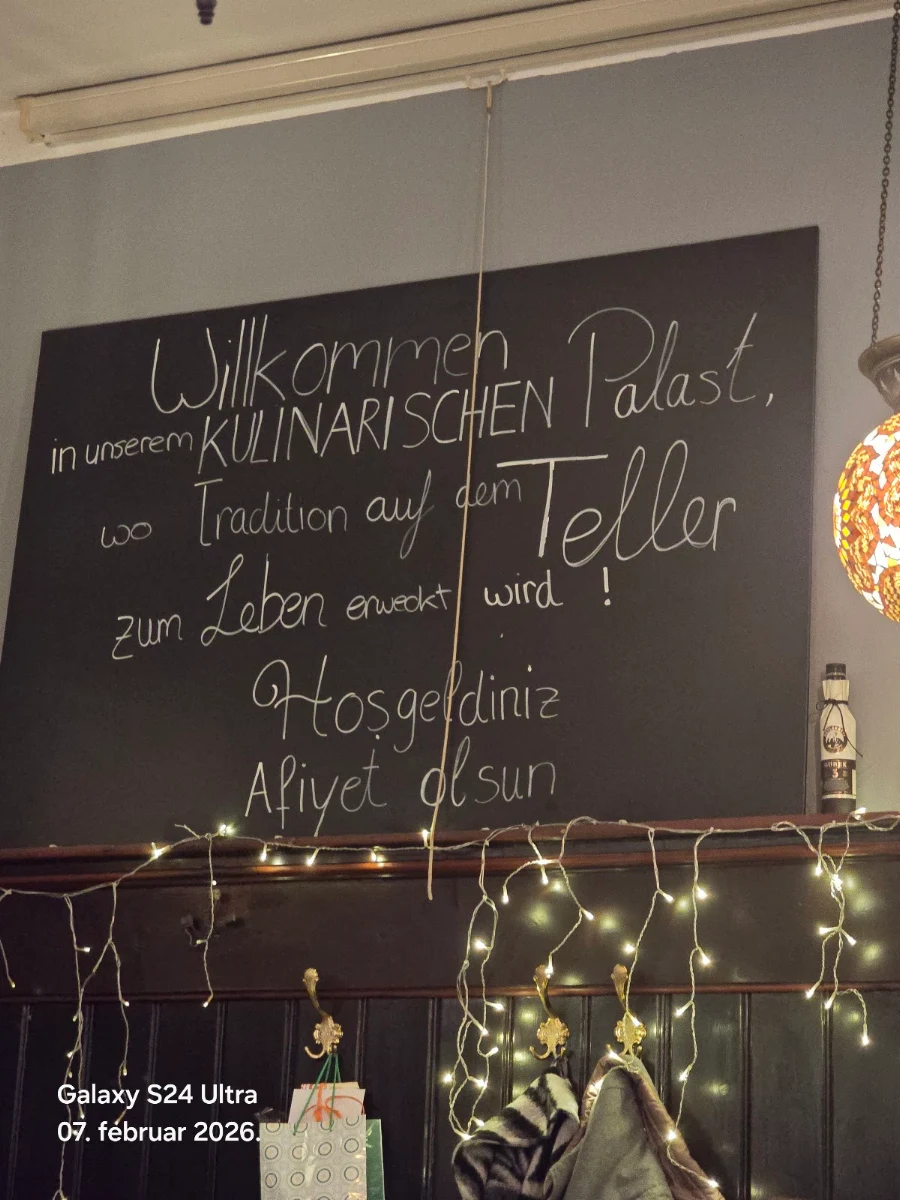 Willkommen
in unserem KULINARISCHEN Palast,
wo Tradition auf dem Teller
zum Leben erweckt wird !
Hoşgeldiniz
Afiyet olsun
Galaxy S24 Ultra
07. februar 2026.